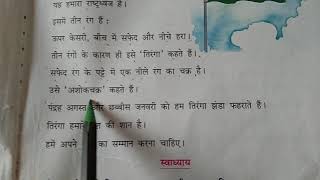 यह हमारा राष्ट्रध्वज है।
इसमें तीन रंग हैं :
ऊपर केसरी, बीच में सफेद और नीचे हरा।
तीन रंगों के कारण ही इसे 'तिरंगा' कहते हैं।
सफेद रंग के पट्टे में एक नीले रंग का चक्र है।
उसे 'अशोकचक्र' कहते हैं।
पंद्रह अगस्त और छब्बीस जनवरी को हम तिरंगा झंडा फहराते हैं।
तिरंगा हमारे की शान है।
हमें अपने का सम्मान करना चाहिए।
स्वाध्याय